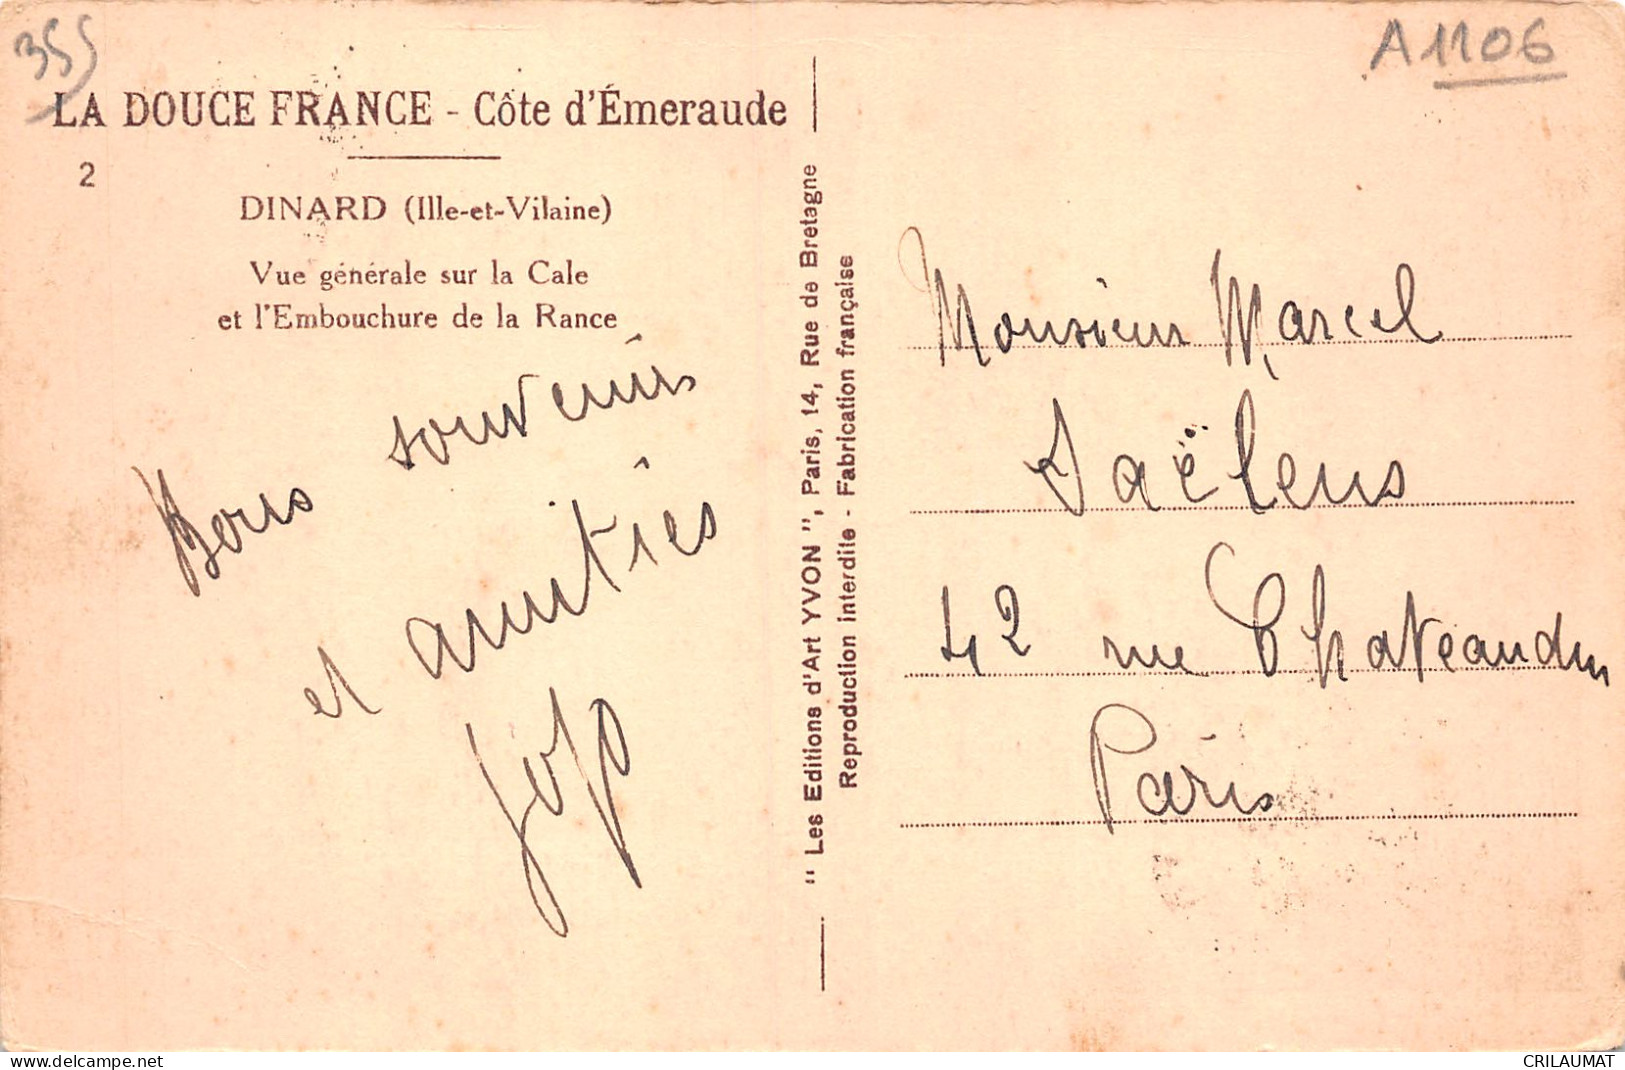 355
A1106
LA DOUCE FRANCE - Côte d'Émeraude
2
DINARD (Ille-et-Vilaine)
Vue générale sur la Cale
et l'Embouchure de la Rance
Bons souvenirs
et amitiés
" Les Editions d'Art YVON ", Paris, 14, Rue de Bretagne
Reproduction interdite - Fabrication française
Monsieur Marcel
Jaëlens
42 rue Chateaudun
Paris
delcampe.net
CRILAUMAT